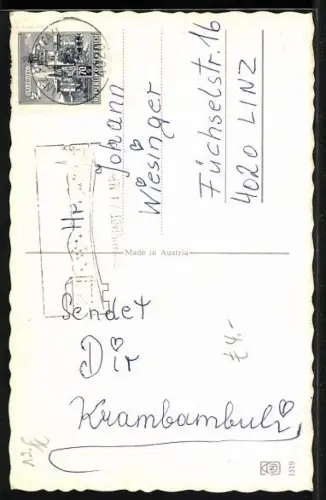 Hr. Johann
Wiesinger
Füchselstr. 16
4020 LINZ
Made in Austria
Sendet
Dir
Krambambuli
£4.-
1519